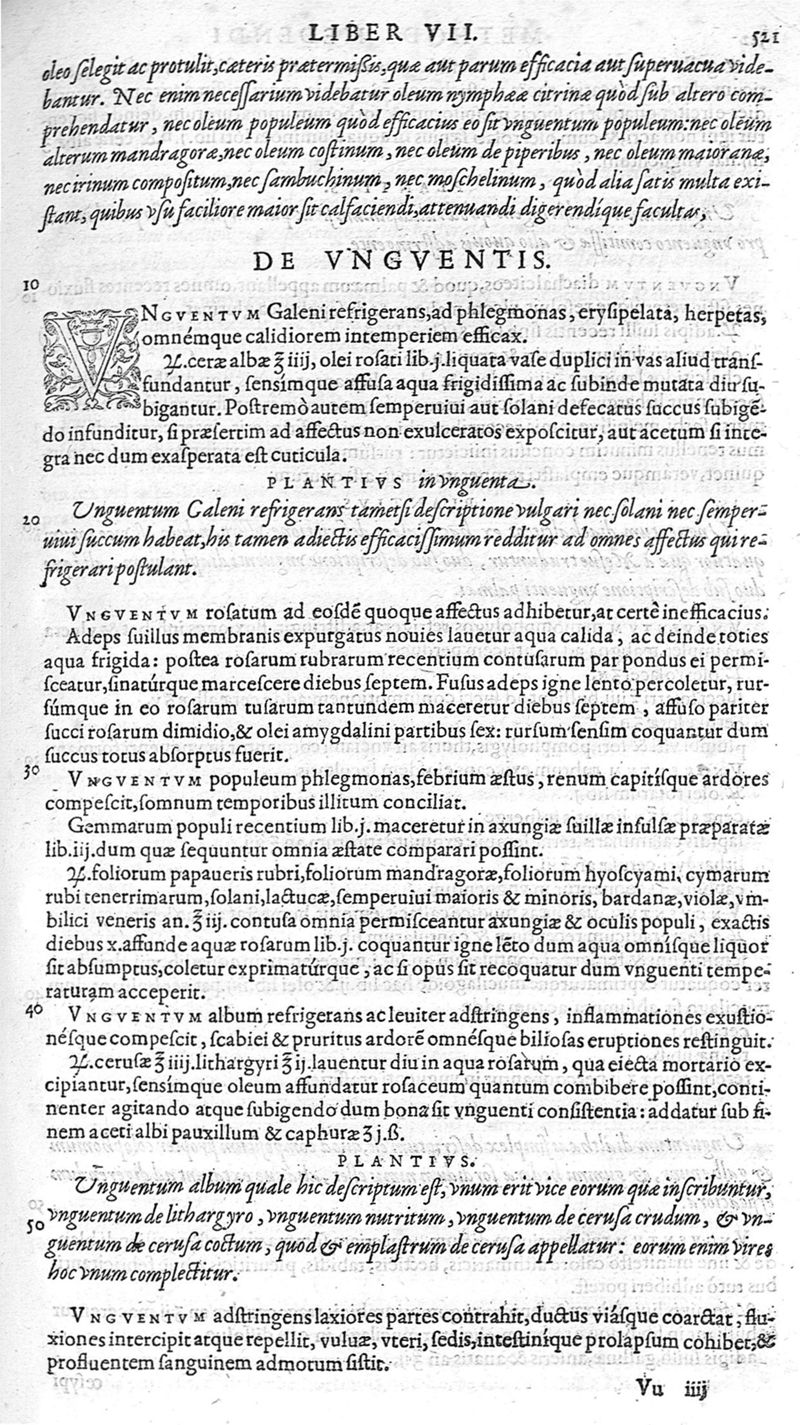 LIBER VII. 521
oleo selegit ac protulit, cæteris prætermißis, quæ aut parum efficacia aut superuacua vide-
bantur. Nec enim necessarium videbatur oleum nymphææ citrinæ quòd sub altero com-
prehendatur, nec oleum populeum quòd efficacius eo sit vnguentum populeum: nec oleum
alterum mandragoræ, nec oleum costinum, nec oleum de piperibus, nec oleum maioranæ,
nec irinum compositum, nec sambuchinum, nec moschelinum, quòd alia satis multa exi-
stant, quibus vsu faciliore maior sit calfaciendi, attenuandi digerendique facultas,
DE VNGVENTIS.
10
VNGVENTVM Galeni refrigerans, ad phlegmonas, erysipelata, herpetas,
omnémque calidiorem intemperiem efficax.
♃. ceræ albæ ℥ iiij, olei rosati lib. j. liquata vase duplici in vas aliud trans-
fundantur, sensimque affusa aqua frigidissima ac subinde mutata diu su-
bigantur. Postremò autem semperuiui aut solani defecatus succus subigē-
do infunditur, si præsertim ad affectus non exulceratos exposcitur, aut acetum si inte-
gra nec dum exasperata est cuticula.
PLANTIVS in vnguenta.
Vnguentum Galeni refrigerans tametsi descriptione vulgari nec solani nec semper-
20 uiui succum habeat, his tamen adiectis efficacissimum redditur ad omnes affectus qui re-
frigerari postulant.
VNGVENTVM rosatum ad eosdē quoque affectus adhibetur, at certè inefficacius.
Adeps suillus membranis expurgatus nouies lauetur aqua calida, ac deinde toties
aqua frigida: postea rosarum rubrarum recentium contusarum par pondus ei permi-
sceatur, sinatúrque marcescere diebus septem. Fusus adeps igne lento percoletur, rur-
súmque in eo rosarum tusarum tantundem maceretur diebus septem, affuso pariter
succi rosarum dimidio, & olei amygdalini partibus sex: rursum sensim coquantur dum
succus totus absorptus fuerit.
30 VNGVENTVM populeum phlegmonas, febrium æstus, renum capitísque ardores
compescit, somnum temporibus illitum conciliat.
Gemmarum populi recentium lib. j. maceretur in axungiæ suillæ insulsæ præparatæ
lib. iij. dum quæ sequuntur omnia æstate comparari possint.
♃. foliorum papaueris rubri, foliorum mandragoræ, foliorum hyoscyami, cymarum
rubi tenerrimarum, solani, lactucæ, semperuiui maioris & minoris, bardanæ, violæ, vm-
bilici veneris an. ℥ iij. contusa omnia permisceantur axungiæ & oculis populi, exactis
diebus x. affunde aquæ rosarum lib. j. coquantur igne lēto dum aqua omnísque liquor
sit absumptus, coletur exprimatúrque, ac si opus sit recoquatur dum vnguenti tempe-
raturam acceperit.
40 VNGVENTVM album refrigerans ac leuiter adstringens, inflammationes exustio-
nésque compescit, scabiei & pruritus ardorē omnésque biliosas eruptiones restinguit.
♃. cerusæ ℥ iiij. lithargyri ℥ ij. lauentur diu in aqua rosarum, qua eiecta mortario ex-
cipiantur, sensimque oleum affundatur rosaceum quantum combibere possint, conti-
nenter agitando atque subigendo dum bona sit vnguenti consistentia: addatur sub fi-
nem aceti albi pauxillum & caphuræ ʒ j. ß.
PLANTIVS.
Vnguentum album quale hic descriptum est, vnum erit vice eorum quæ inscribuntur,
50 vnguentum de lithargyro, vnguentum nutritum, vnguentum de cerusa crudum, & vn-
guentum de cerusa coctum, quod & emplastrum de cerusa appellatur: eorum enim vires
hoc vnum complectitur.
VNGVENTVM adstringens laxiores partes contrahit, ductus viásque coarctat, flu-
xiones intercipit atque repellit, vuluæ, vteri, sedis, intestiníque prolapsum cohibet, &
profluentem sanguinem admotum sistit.
Vu iiij